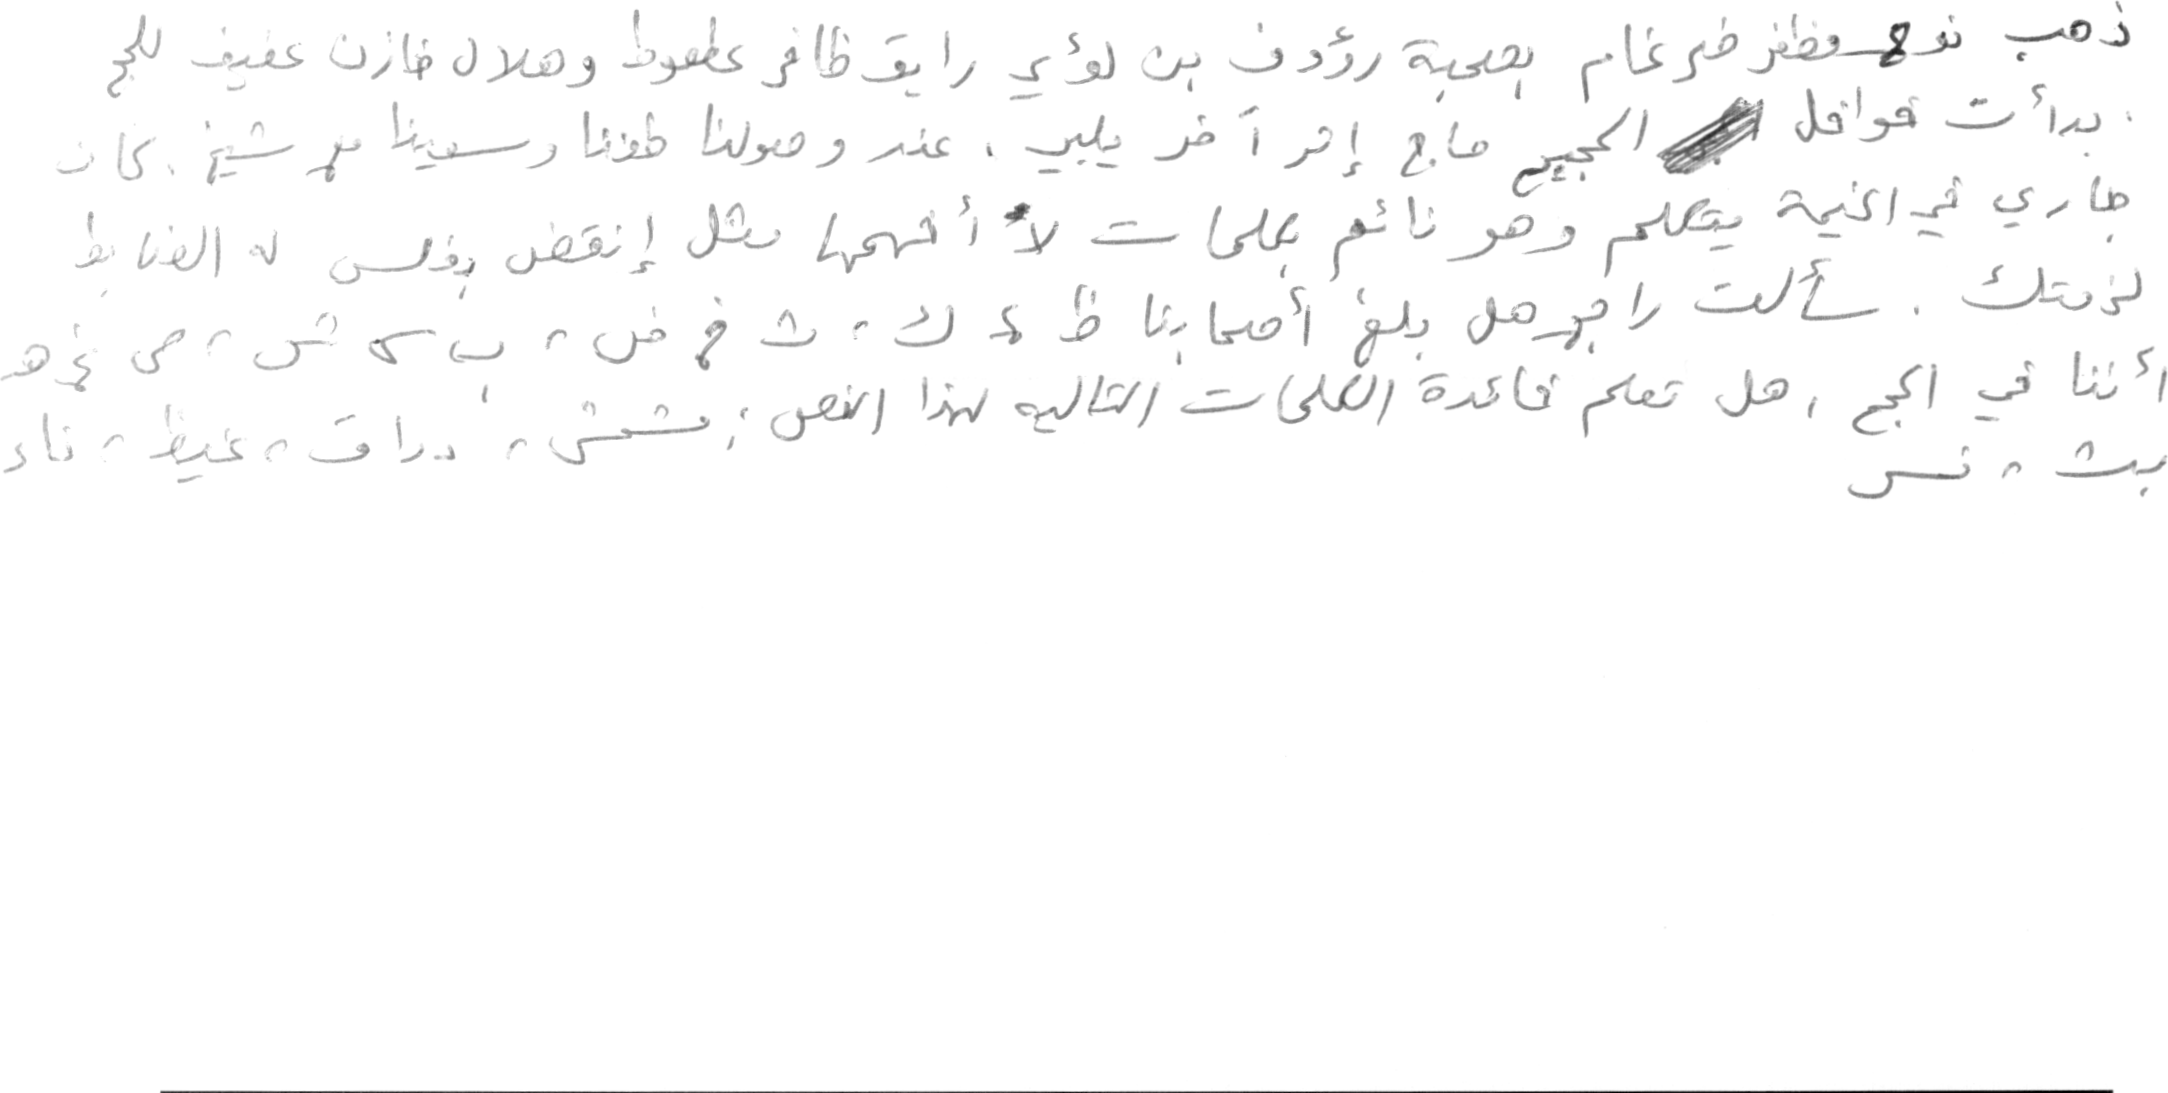 ذهب نوح مظفر ضرغام بصحبة رؤوف بن لؤي رايق ظافر عطعوط وهلال خازن عفيف للحج
. بدأت قوافل الحجيج حاج إثر آخر يلبي . عند وصولنا طفنا وسعينا مع شيخ . كان
جاري في الخيمة يتكلم وهو نائم بكلمات لا أفهمها مثل إنقض بفلس له الضابط
لزمتك . سألت راجح هل بلغ أصحابنا ظ ع ك ، ث خ ض ، ب ع ش ، ص غ هـ
أننا في الحج ، هل تعلم فائدة الكلمات التالية لهذا النص : مشمش ، دراق ، غيظ ، ناء
بث ، نس